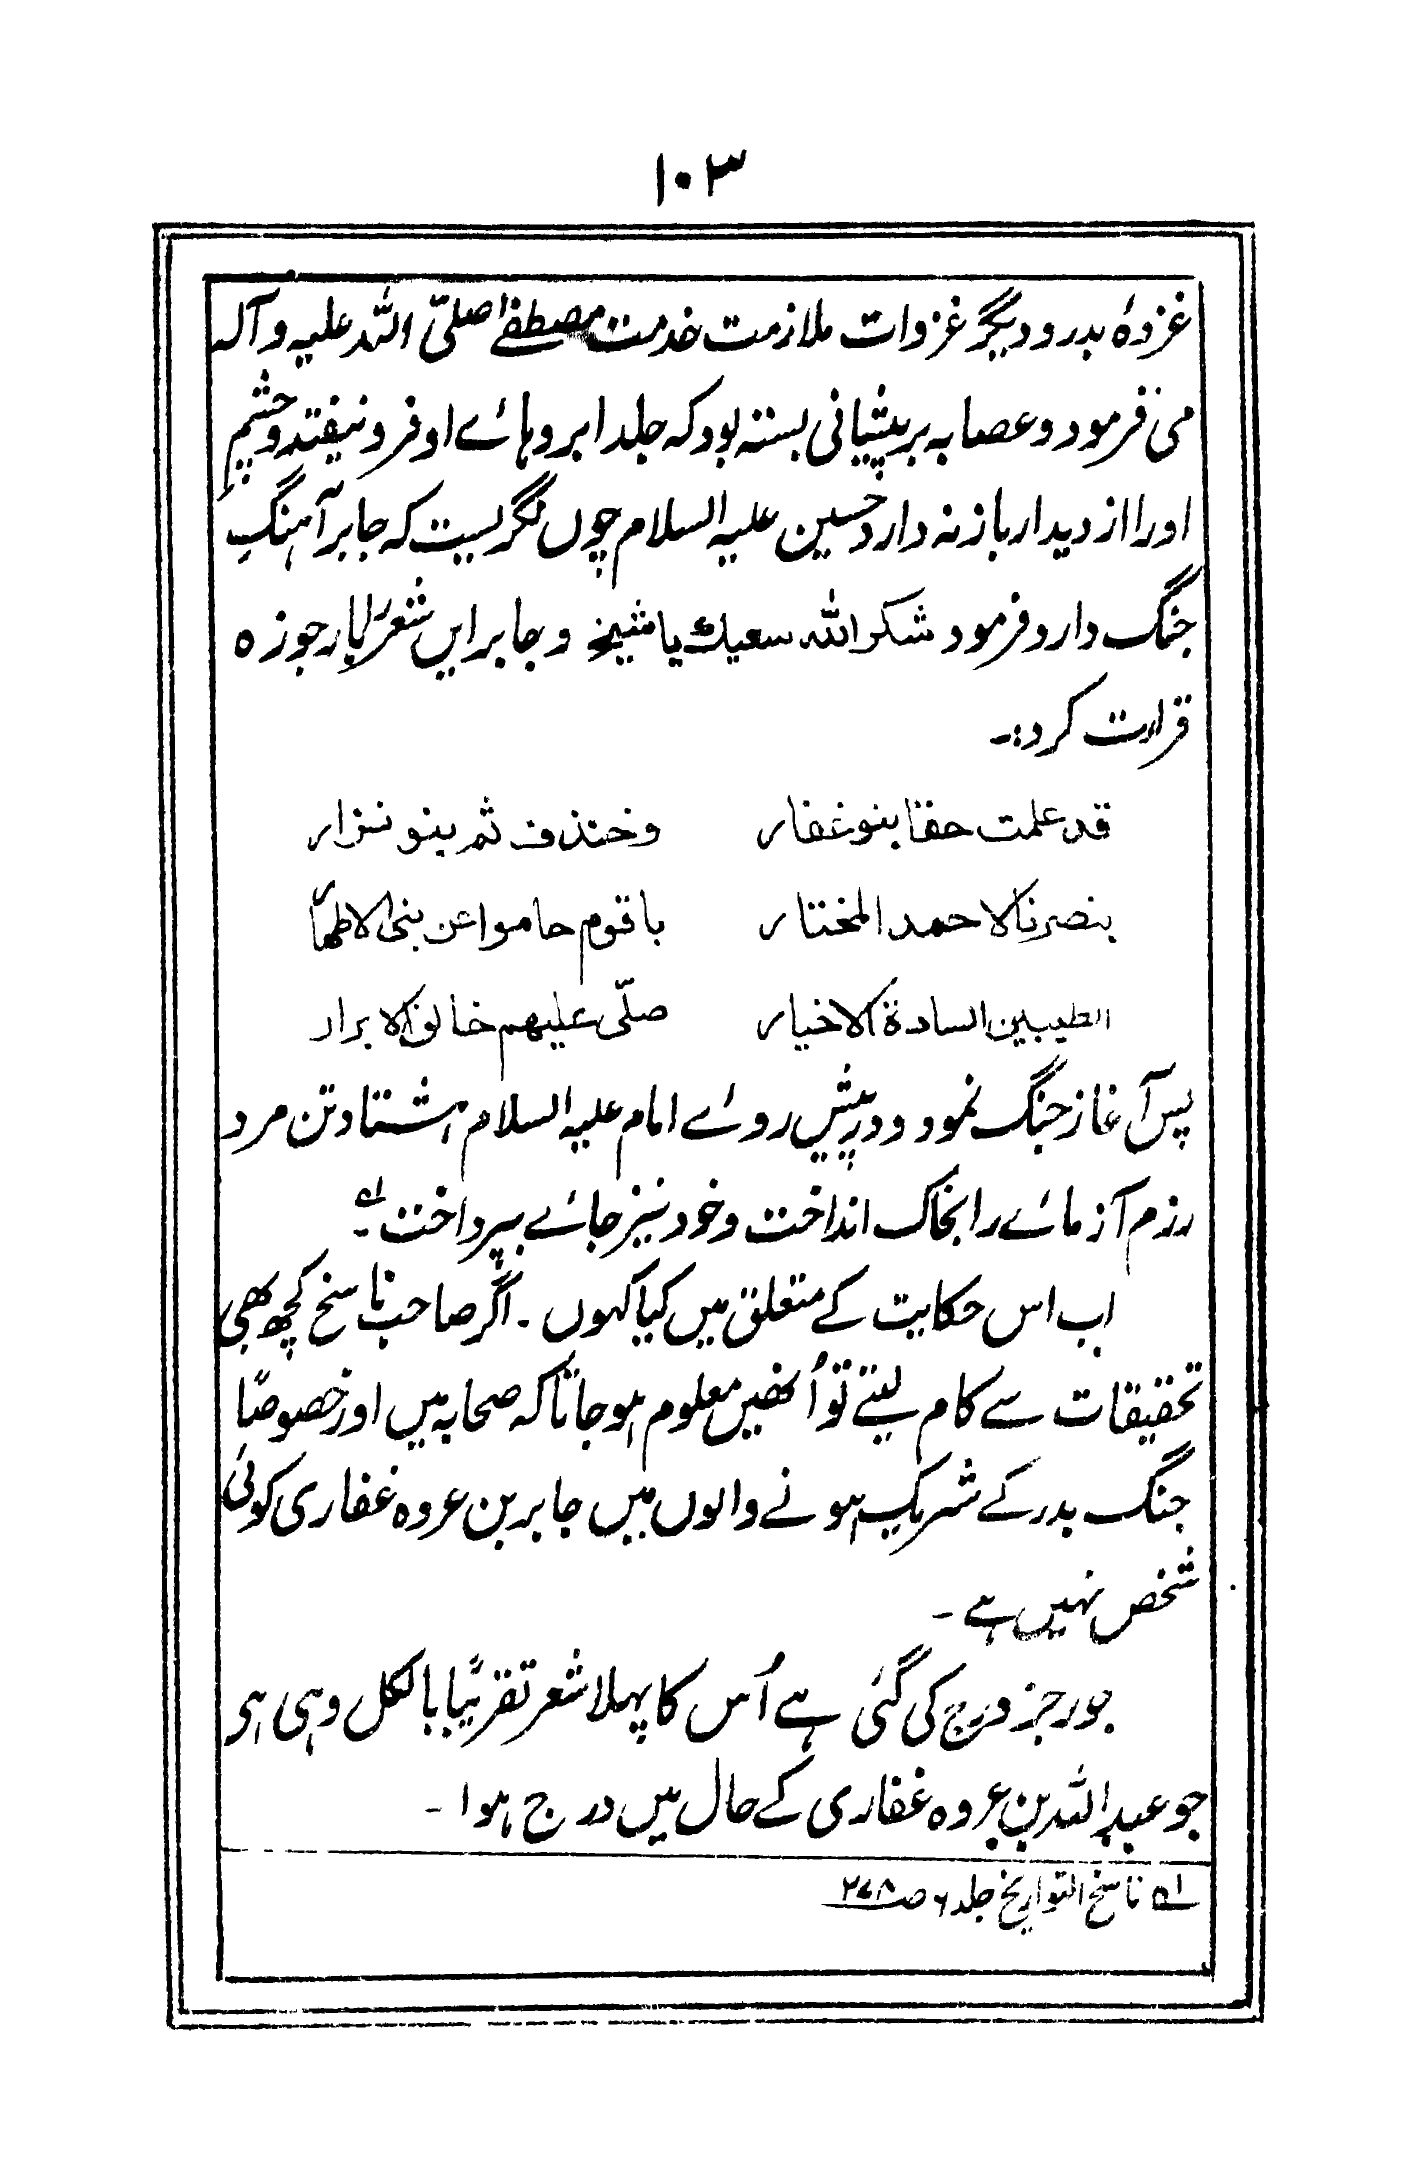 ۱۰۳
غزوۂ بدر و دیگر غزوات ملازمت خدمت مصطفےٰ صلیّ اللہ علیہ و آلہ
می فرمود و عصابہ بر پیشانی بستہ بود کہ جلد ابروہائے او فرو نیفتد و چشمِ
اورا از دیدار باز نہ دارد حسین علیہ السلام چوں نگریست کہ جابر آہنگِ
جنگ دارد فرمود شکر اللہ سعیك یا شیخ و جابر ایں شعر را بار جوزہ
قرارت کرد:۔
قد علمت حقا بنو غفار وخندف ثم بنو نزار
بنصرنا لاحمد المختار یا قوم حاموا عن بنی الاطهار
الطیبین السادة الاخیار صلّی علیهم خالق الابرار
پس آغاز جنگ نمود و در پیش روئے امام علیہ السلام ہشتاد تن مرد
رزم آزمائے را بخاک انداخت و خود نیز جائے بپرداخت۔ لہ
اب اس حکایت کے متعلق میں کیا کہوں ۔ اگر صاحب ناسخ کچھ بھی
تحقیقات سے کام لیتے تو اُنھیں معلوم ہو جاتا کہ صحابہ میں اور خصوصًا
جنگ بدر کے شریک ہونے والوں میں جابر بن عروہ غفاری کوئی
شخص نہیں ہے ۔
جو رجز درج کی گئی ہے اُس کا پہلا شعر تقریبًا بالکل وہی ہو
جو عبد اللہ بن عروہ غفاری کے حال میں درج ہوا ۔
لہ ناسخ التواریخ جلد ۶ صـ ۲۷۸